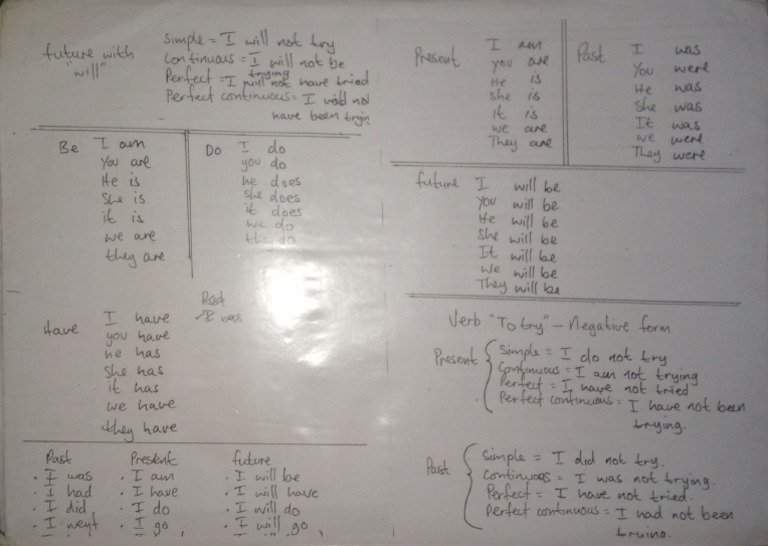 future with
"will"
Simple = I will not try
Continuous = I will not be
trying
Perfect = I will not have tried
Perfect continuous = I will not
have been tryin
Be
I am
You are
He is
She is
it is
we are
they are
Do
I do
you do
he does
she does
it does
we do
Have
I have
you have
he has
she has
it has
we have
they have
Past
I was
Past
· I was
· I had
· I did
· I weyt
Present
· I am
· I have
· I do
· I go
future
· I will be
· I will have
· I will do
· I will go
Present
I am
you are
He is
She is
it is
we are
They are
Past
I was
You were
He was
She was
It was
we were
They were
future
I will be
You will be
He will be
She will be
It will be
We will be
They will be
Verb "To try" – Negative form
Present
Simple = I do not try
Continuous = I am not trying
Perfect = I have not tried
Perfect continuous = I have not been
trying.
Past
Simple = I did not try.
Continuous = I was not trying.
Perfect = I have not tried.
Perfect continuous = I had not been
trying.